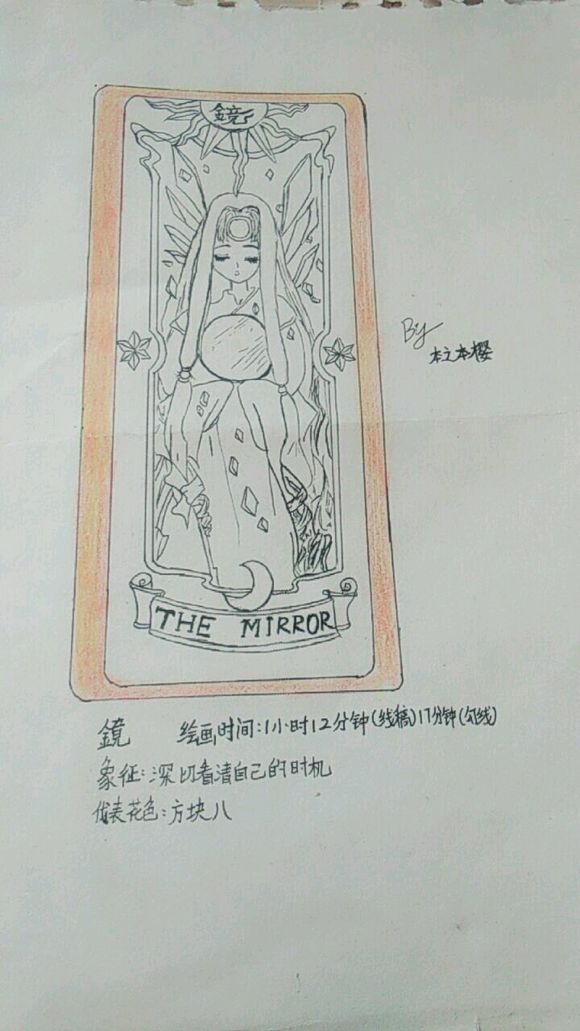 鏡
By
木之本樱
THE MIRROR
鏡 绘画时间:1小时12分钟(线稿)17分钟(勾线)
象征:深切看清自己的时机
代表花色:方块八